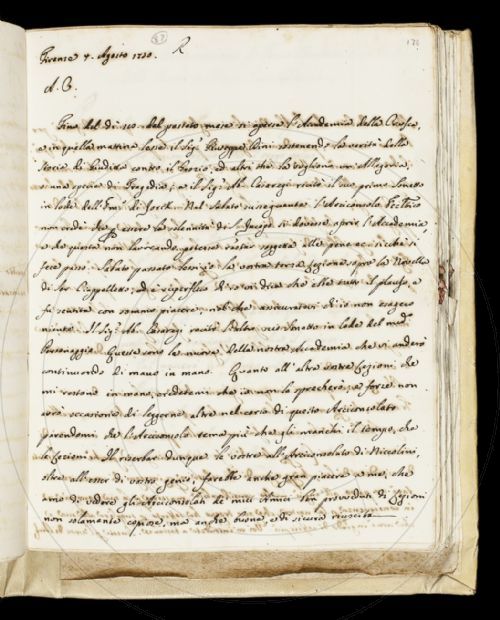 Firenze 4. Agosto 1750.
A. C.
Fino del dì 20. del passato mese si aperse l'Accademia della Crusca,
e in quella mattina lesse il Sig. Giuseppe Bini sostenendo la verità della
Storia di Giuditta contro il Grozio, ed altri che la vogliono un'Allegoria,
o una specie di Tragedia; e il Sig. Ab. recitò il suo primo Sonetto
in lode dell' di York. Nel Sabato susseguente l'Arciconsolo
non crede che per essere la solennità di S. Jacopo si dovesse aprir l'Accademia,
e da questa non
fece passo. Sabato passato lessi io la vostra terza Lezione sopra la Novella
di Ser Ciappelletto, ed è superfluo di vi dica che che tutti il plauso, e
fu sentita con sommo piacere, potete assicurarvi di io non esagero
niente. Il Sig. Ab. recitò l'altro suo Sonetto in lode del med.
Personaggio. Queste sono le nuove della nostra Accademia che vi anderò
continuando di mano in mano. Quanto all'altre vostre Lezioni, che
mi restano in mano, credetemi che io non le sprecherò, e forse non
avrò occasione di leggerne altre nel corso di questo Arciconsolato
parendomi che l'Arciconsolo tema più che gli manchi il tempo, che
le Lezioni. Il riserbar dunque le vostre all'Arciconsolato di Niccolini,
oltre all'esser di vostro genio, sarebbe anche gran piacere a me, che
amo di vedere gli Arciconsolati de' miei Amici più provveduti di Lezioni
non solamente copiose, ma anche buone, e di sicura riuscita